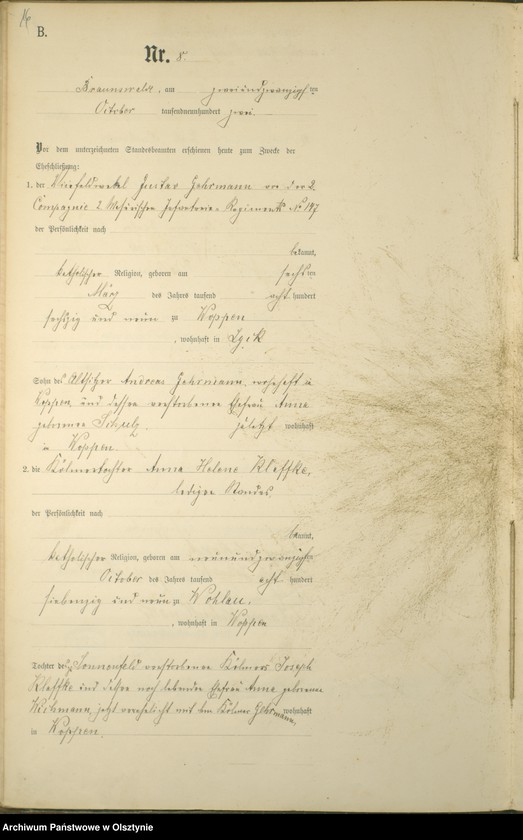 B.
Nr. 8.
am zweiundzwanzigsten
October tausendneunhundert zwei.
Vor dem unterzeichneten Standesbeamten erschienen heute zum Zwecke der
Eheschließung:
1. der Gustav Gehrmann von der 2.
Compagnie 2. Infanterie-Regiments No 147
der Persönlichkeit nach
bekannt,
katholischer Religion, geboren am sechsten
März des Jahres tausend acht hundert
sechszig und neun zu Woppen
, wohnhaft in Lyck
Sohn des Altsitzer Andreas Gehrmann, wohnhaft in
Woppen und dessen verstorbenen Ehefrau Anna
geborenen Schulz. zuletzt wohnhaft
in Woppen.
2. die Kölmertochter Anna Helene Kleffke,
ledigen Standes,
der Persönlichkeit nach
bekannt,
katholischer Religion, geboren am neunundzwanzigsten
October des Jahres tausend acht hundert
siebenzig und neun zu Wohlau,
, wohnhaft in Woppen
Tochter des zu Sonnenfeld verstorbenen Kölmers Joseph
Kleffke und dessen noch lebenden Ehefrau Anna geborenen
Wichmann, jetzt verehelicht mit dem Kölmer Gehrmann, wohnhaft
in Woppen.
Archiwum Państwowe w Olsztynie